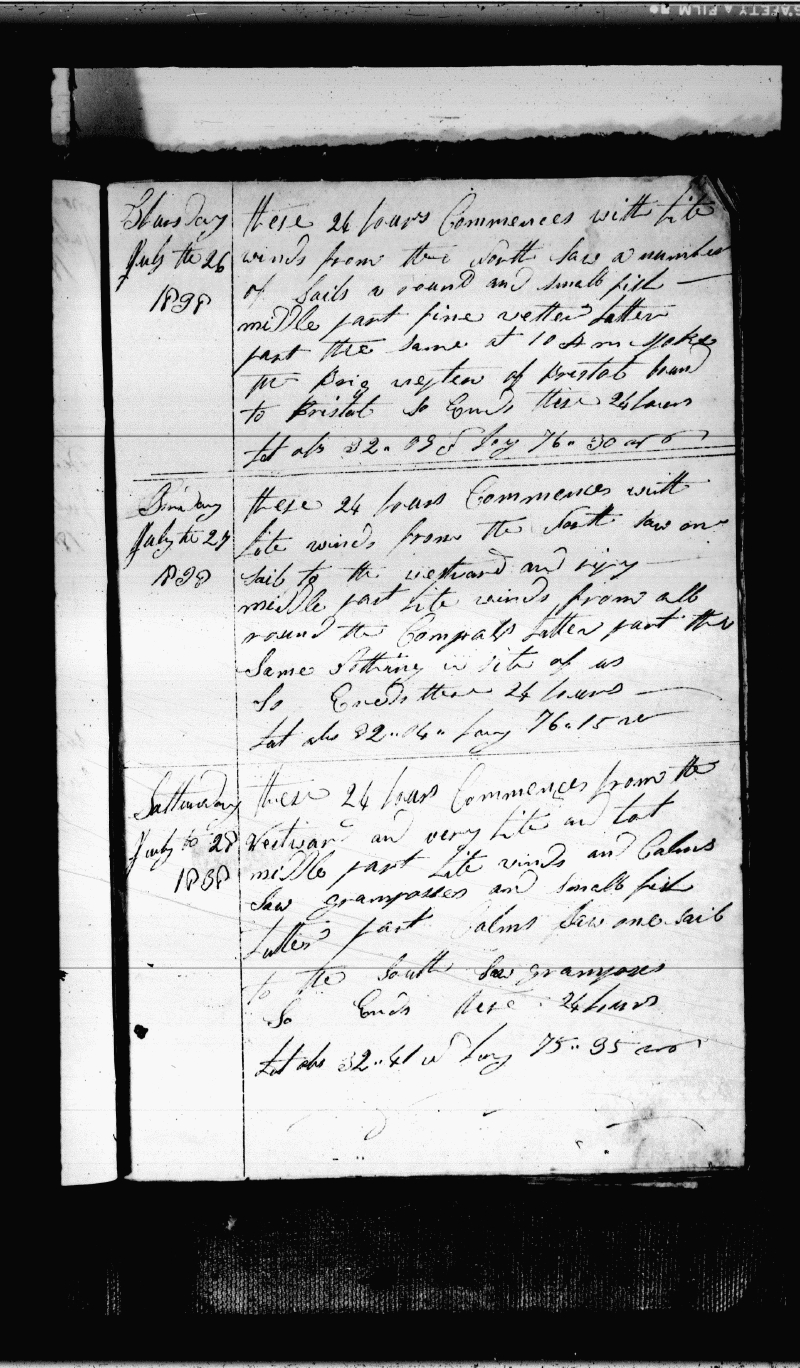 SAFETY FILM
Thursday
July the 26
1838
these 24 hours Commences with Lite
winds from the North Saw a number
of Sails a round and small fish
middle part fine wether Latter
part the same at 10 A m Spoke
the Brig of Bristol bound
to Bristol So Ends these 24 hours
Lat obs 32.. Long 76..30
Friday
July the 27
1838
these 24 hours Commences with
Lite winds from the North Saw one
Sail to the westward and
middle part Lite winds from all
round the Compass Latter part the
Same Nothing in Site of us
So Ends these 24 hours
Lat obs 32..04.. Long 76..15
Satturday
July the 28
1838
these 24 hours Commences from the
Westward and very Lite and
middle part Lite winds and Calms
Saw grampusses and small fish
Latter part Calms Saw one sail
to the South Saw grampuses
So Ends these 24 hours
Lat obs 32..41 Long 75..35